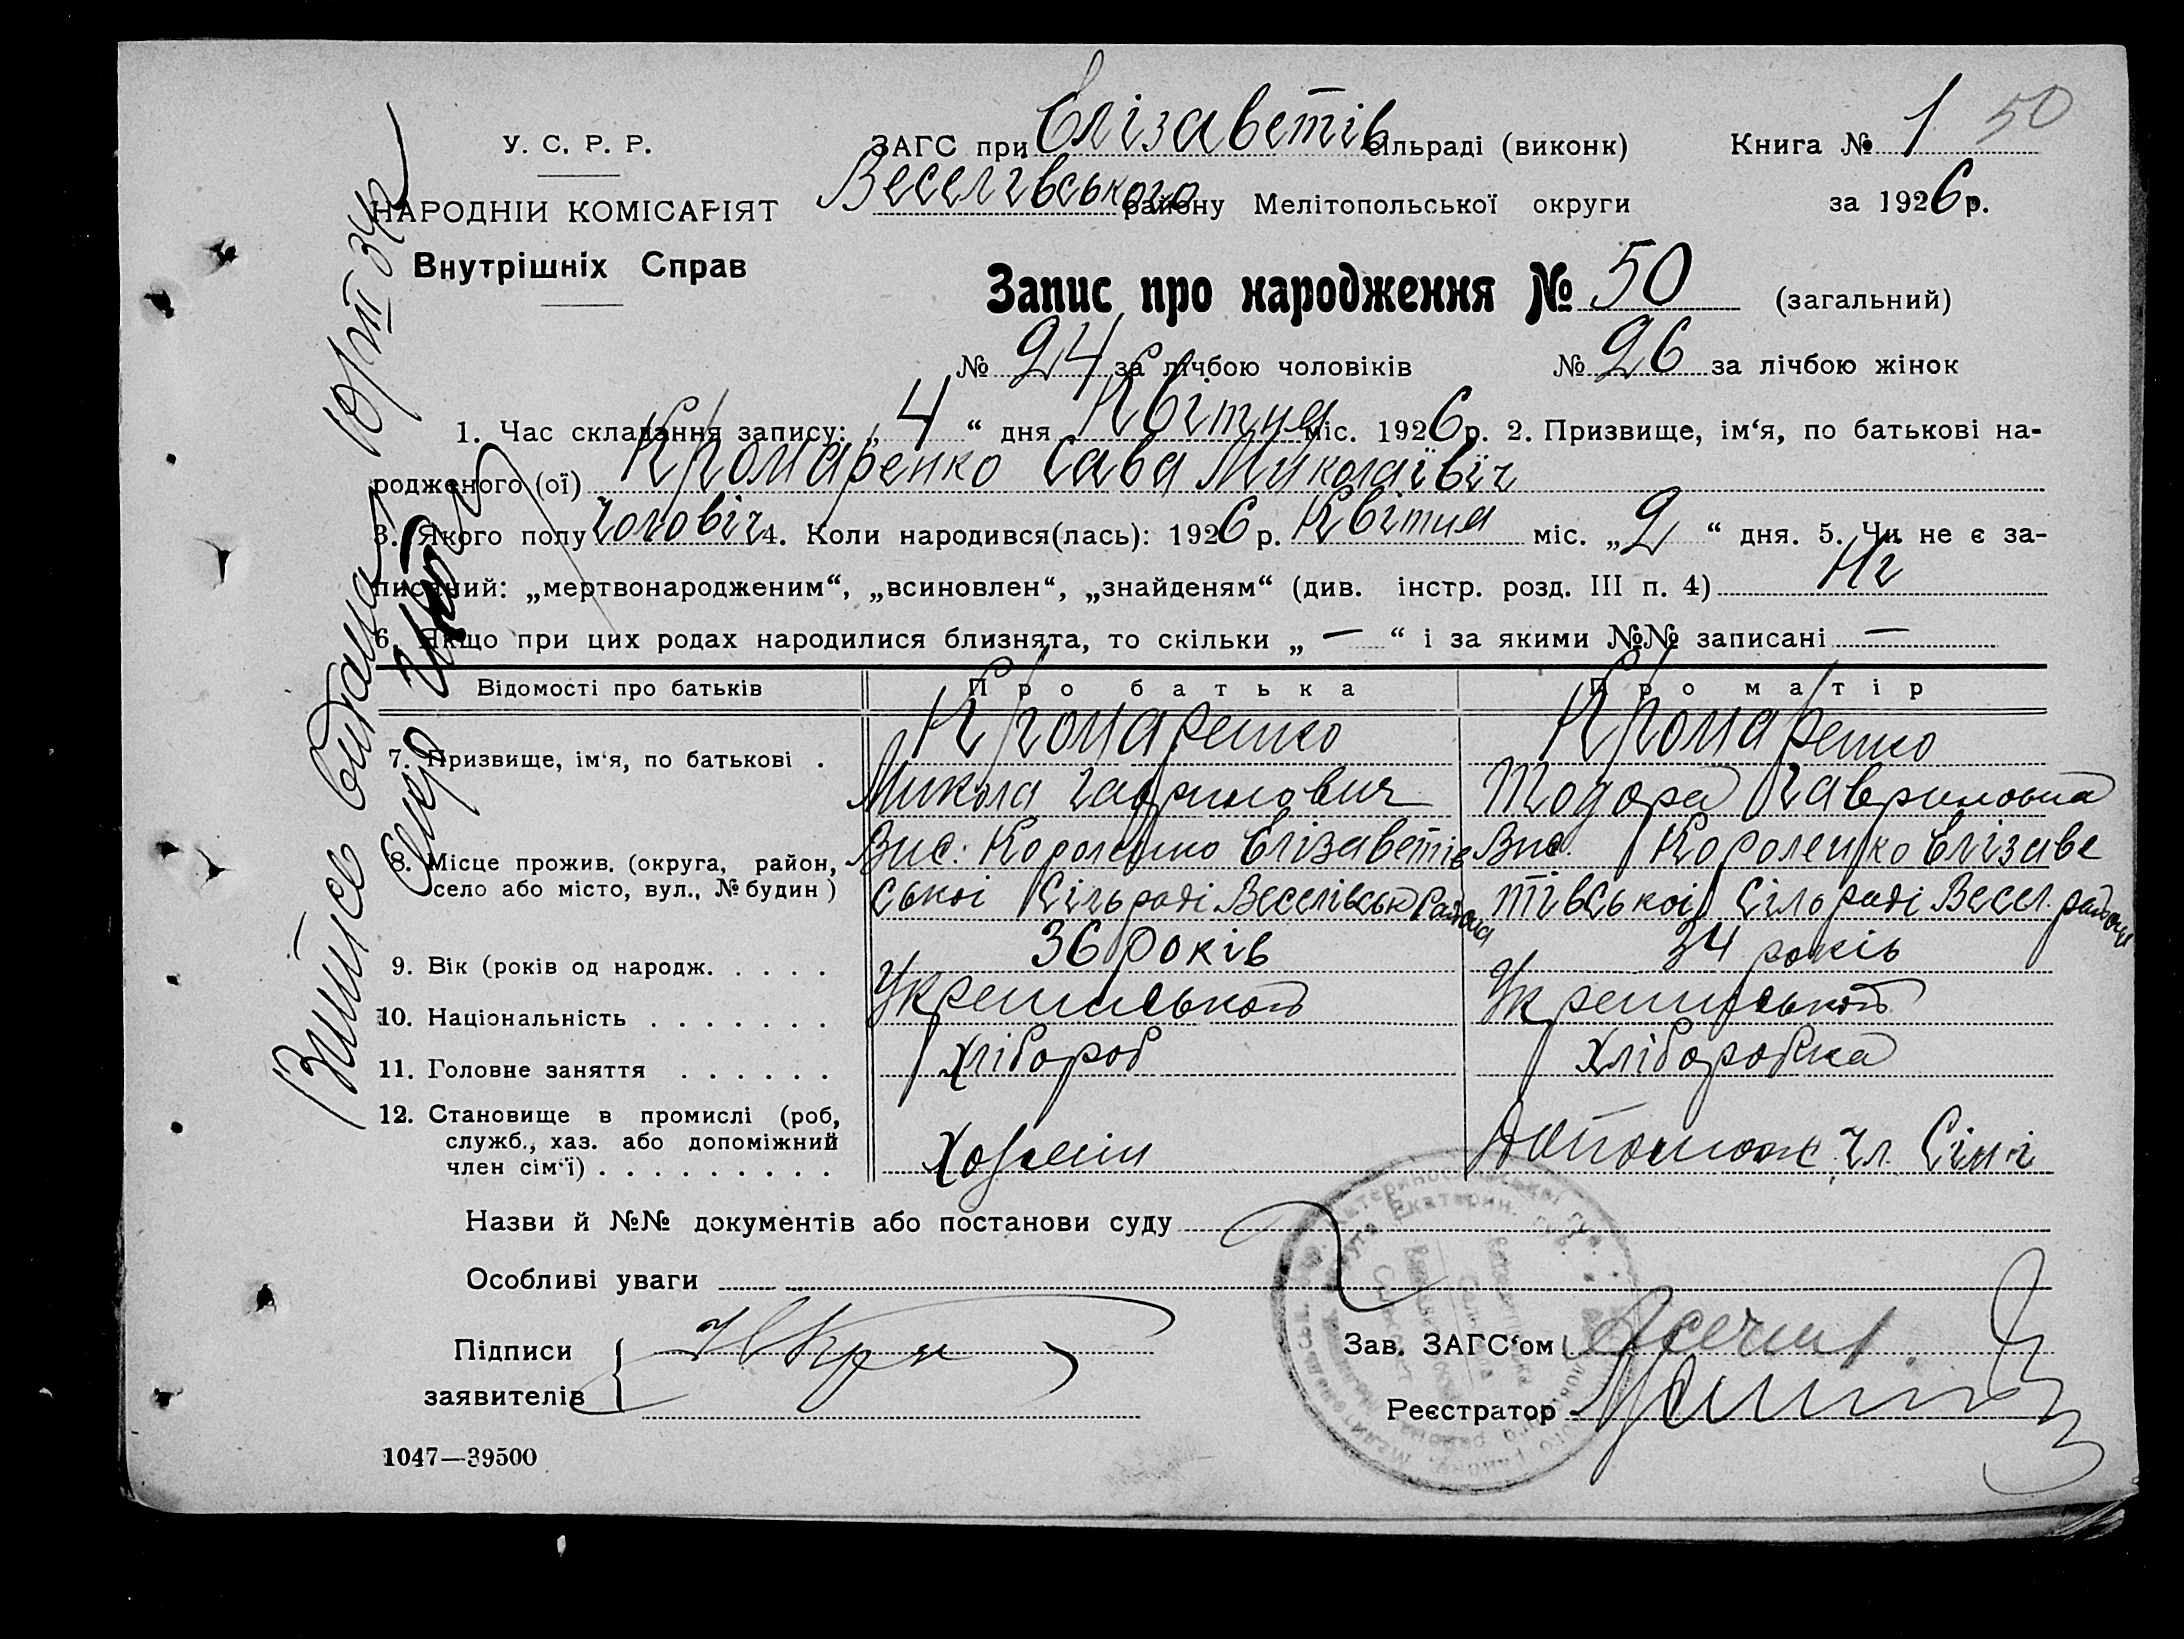 У. С. Р. Р.
НАРОДНІЙ КОМІСАРІЯТ
Внутрішніх Справ
ЗАГС при Єлізаветів сільраді (виконк) Книга № 1 50
Веселівського району Мелітопольської округи за 1926 р.
Запис про народження № 50 (загальний)
№ 24 за лічбою чоловіків № 26 за лічбою жінок
1. Час складання запису: „4“ дня Квітня міс. 1926 р. 2. Призвище, ім‘я, по батькові на-
родженого (ої) Кромаренко Сава Миколаївіч
3. Якого полу Чоловіч 4. Коли народився(лась): 1926 р. Квітня міс. „2“ дня. 5. Чи не є за-
писаний: „мертвонародженим“, „всиновлен“, „знайденям“ (див. інстр. розд. III п. 4) Ні
6. Якщо при цих родах народилися близнята, то скільки „ — “ і за якими №№ записані —
Відомості про батьків Про батька Про матір
7. Призвище, ім‘я, по батькові . Кромаренко Кромаренко
Микола Гаврилович Тодора Гавриловна
8. Місце прожив. (округа, район, село або місто, вул., № будин ) Вис. Короленко Єлізаветів Вис. Короленко Єлізаве
ської Сільраді Веселівськ Района тівської Сільраді Весел. района
9. Вік (років од народж. . . . . . 36 років 34 років
10. Національність . . . . . . . Украинськой Украинськой
11. Головне заняття . . . . . . Хлібороб Хліборобка
12. Становище в промислі (роб,
служб., хаз. або допоміжний
член сім‘ї) . . . . . . . . . Хозяин Допомож. чл. Сімі
Назви й №№ документів або постанови суду
Особливі уваги
Підписи
заявителів
Зав. ЗАГС‘ом
Реєстратор
1047—39500
Витись видана